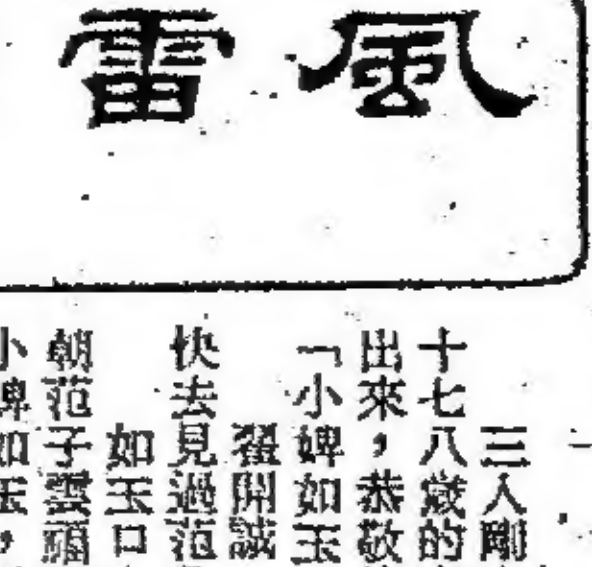 風雷
三人剛
十七八歲的
出來，恭敬
「小婢如玉
翟開誠
快去見過范
如玉口
朝范子雲福
小婢如玉，